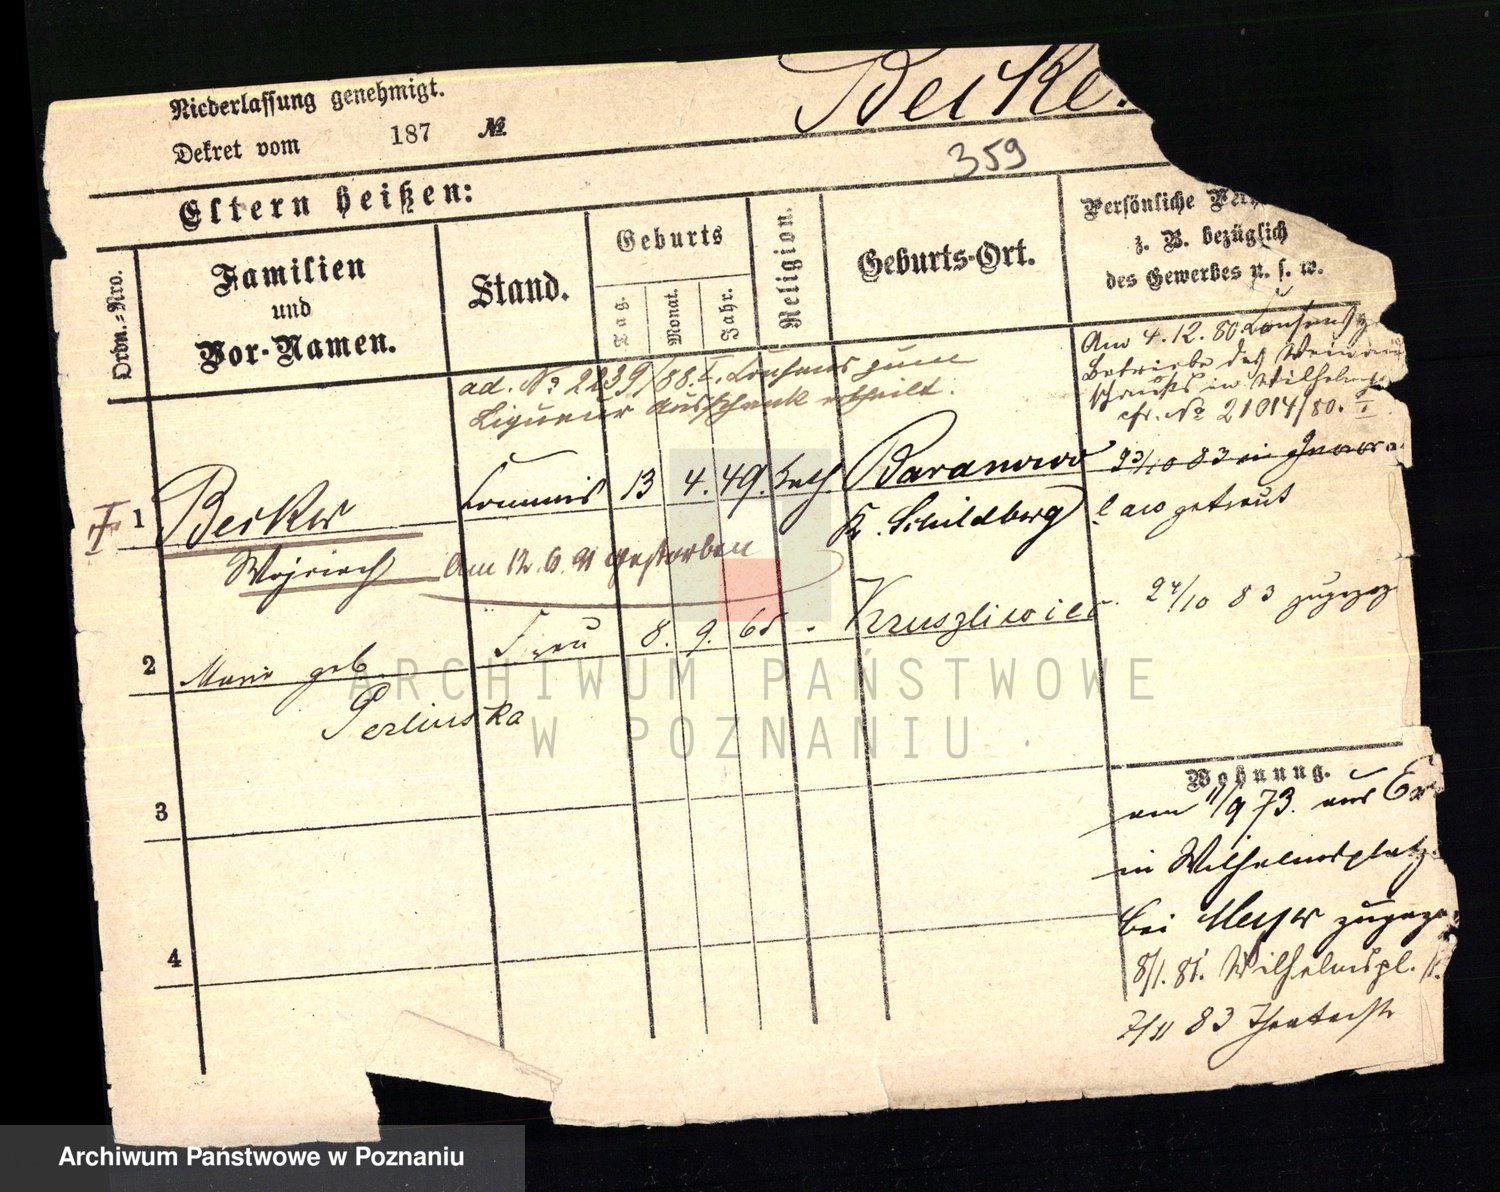 Niederlassung genehmigt.
Dekret vom 187 №
359
Eltern heißen:
Ordn.-Nro.
Familien
und
Vor-Namen.
Stand.
Geburts
Tag.
Monat.
Jahr.
Religion.
Geburts-Ort.
Persönliche
z. B. bezüglich
des Gewerbes u. s. w.
ad. No 2239/88. I. Consens zum
Liqueur Ausschank ertheilt.
Am 4.12.80 Consens z
Betriebe des
in Wilhelmspl
cfr. No 21014/80. I
I
1
Commis 13 4. 49. kath Baranowo
Kr. Schildberg
23/10 83 in
law getraut
Am 12. 6. 91 gestorben
2
Marie geb.
Perlinska
Frau 8. 9. 65 -
24/10 83 zugezog
3
4
Wohnung.
am 11/9 73. aus
in Wilhelmsplatz
bei Meyer zugezo
8/1. 81. Wilhelmspl.
7/11 83 Theaterstr
ARCHIWUM PAŃSTWOWE
W POZNANIU
Archiwum Państwowe w Poznaniu